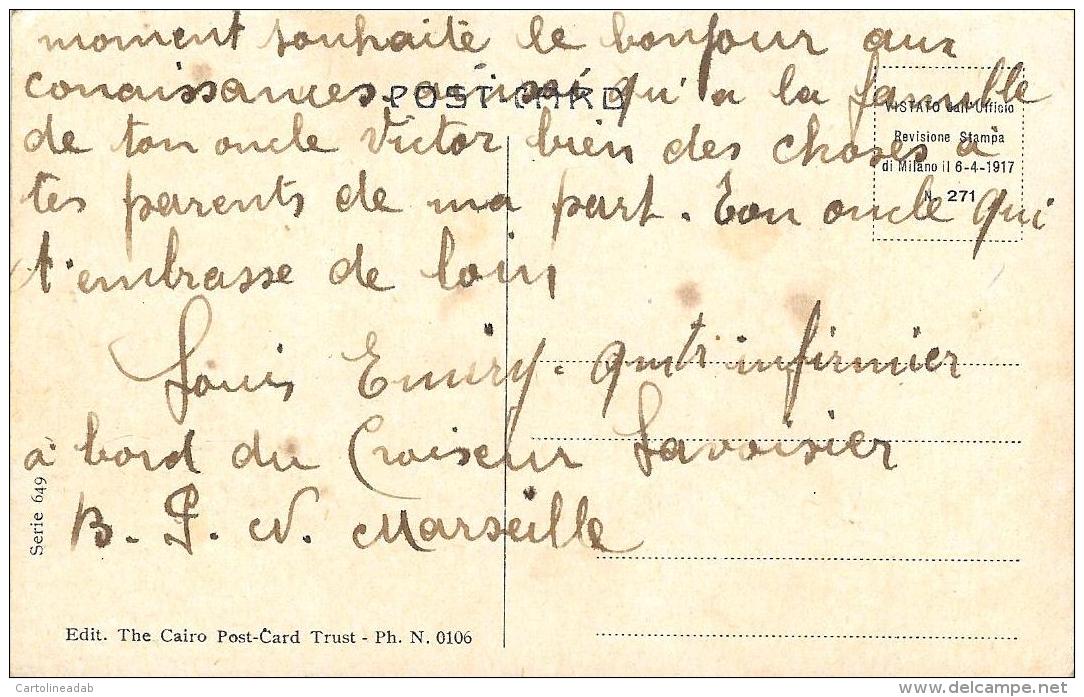 moment souhaite le bonjour aux
conaissances ainsi qu'a la famille
POST CARD
VISTATO dall'Ufficio
Revisione Stampa
di Milano il 6-4-1917
N. 271
de ton oncle Victor bien des choses a
tes parents de ma part. Ton oncle qui
t'embrasse de loin
Louis Emery. qmtr infirmier
à bord du Croiseur Lavoisier
B. P. N. Marseille
Serie 649
Edit. The Cairo Post-Card Trust - Ph. N. 0106
Cartolineadab
www.delcampe.net